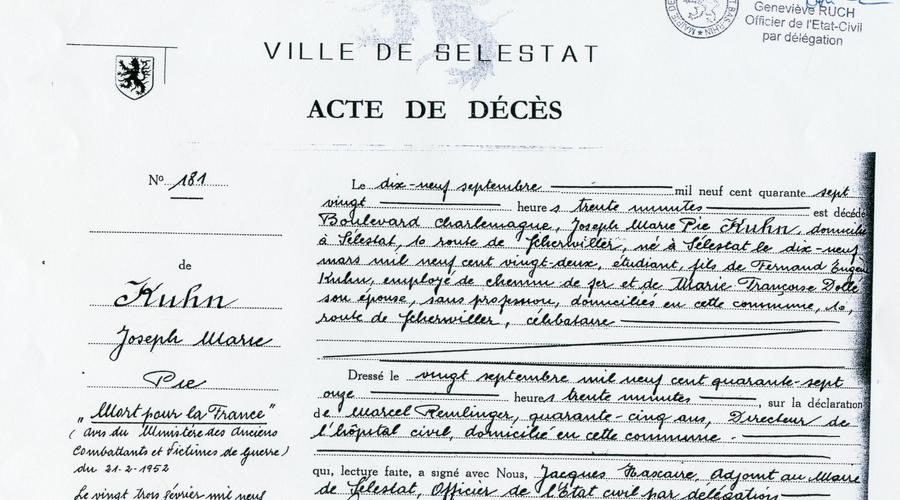 Geneviève RUCH
Officier de l'Etat-Civil
par délégation
VILLE DE SELESTAT
ACTE DE DÉCÈS
N° 181
de
Kuhn
Joseph Marie
Pie
„Mort pour la France"
(avis du Ministère des Anciens
Combattants et Victimes de Guerre)
du 21-2-1952
Le vingt trois février mil neuf
Le dix-neuf septembre mil neuf cent quarante sept
vingt heures trente minutes est décédé
Boulevard Charlemagne, Joseph Marie Pie Kuhn, domicilié
à Sélestat, 10 route de Scherwiller, né à Sélestat le dix-neuf
mars mil neuf cent vingt-deux, étudiant, fils de Fernand Eugen
Kuhn, employé de chemin de fer et de Marie Françoise Dolle
son épouse, sans profession, domiciliés en cette commune, 10,
route de Scherwiller, célibataire
Dressé le vingt septembre mil neuf cent quarante-sept
onze heures trente minutes, sur la déclaration
de Marcel Remlinger, quarante-cinq ans, Directeur de
l'hôpital civil, domicilié en cette commune.
qui, lecture faite, a signé avec Nous, Jacques Adjoint au Maire
de Sélestat, Officier de l'État civil par délégation